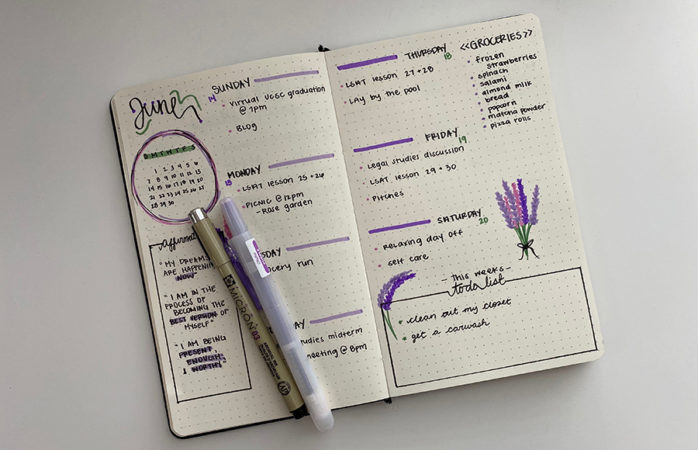 June
1 2 3 4 5 6
7 8 9 10 11 12 13
14 15 16 17 18 19 20
21 22 23 24 25 26 27
28 29 30
"MY DREAMS
ARE HAPPENING
NOW"
"I AM IN THE
PROCESS OF
BECOMING THE
BEST VERSION OF
MYSELF"
"I AM BEING
PRESENT,
ENOUGH,
WORTHY
SUNDAY
14
• Virtual UCSC graduation
@ 1pm
• BLOG
MONDAY
15
• LSAT lesson 25 + 26
• PICNIC @ 12pm
- Rose garden
SDAY
cery run
AY
udies midterm
meeting @ 8pm
THURSDAY
18
• LSAT lesson 27 + 28
• Lay by the pool
FRIDAY
19
• Legal studies discussion
• LSAT lesson 29 + 30
• Pitches
SATURDAY
20
• Relaxing day off
• self care
<<GROCERIES>>
• frozen
strawberries
• spinach
• salami
• almond milk
• bread
• popcorn
• matcha powder
• pizza rolls
- This weeks -
to do list
• clean out my closet
• get a carwash
MICRON 03